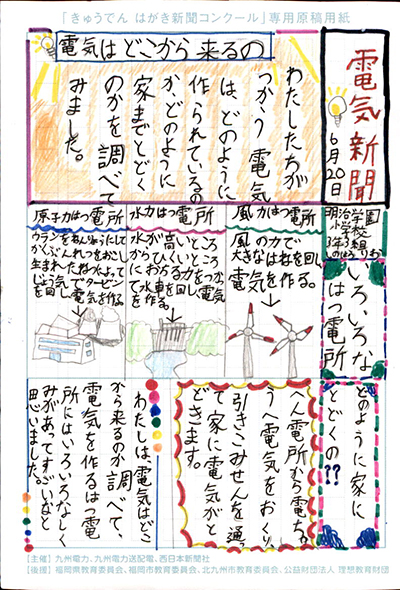 「きゅうでん はがき新聞コンクール」専用原稿用紙
電気新聞
6月20日
明治学園
小学校
3年3組
電気はどこから来るの
わたしたちが
つかう電気
は、どのように
作られているの
か、どのように
家までとどく
のかを調べて
みました。
いろいろな
はつ電所
風力はつ電所
風の力で
大きなはねを回し
電気を作る。
水力はつ電所
水が高いところ
からひくいところ
におちる力をつかっ
て水車を回し電気
を作る。
原子力はつ電所
ウランをねんりょうにして
かくぶんれつをおこし
生まれたねつによって
じょう気でタービン
を回し電気を作る。
どのように家に
とどくの⁇
へん電所から電ち
うへ電気をおくり、
引きこみせんを通っ
て家に電気がと
どきます。
わたしは、電気はどこ
から来るのか調べて、
電気を作るはつ電
所にはいろいろなしく
みがあってすごいなと
思いました。
【主催】九州電力、九州電力送配電、西日本新聞社
【後援】福岡県教育委員会、福岡市教育委員会、北九州市教育委員会、公益財団法人 理想教育財団